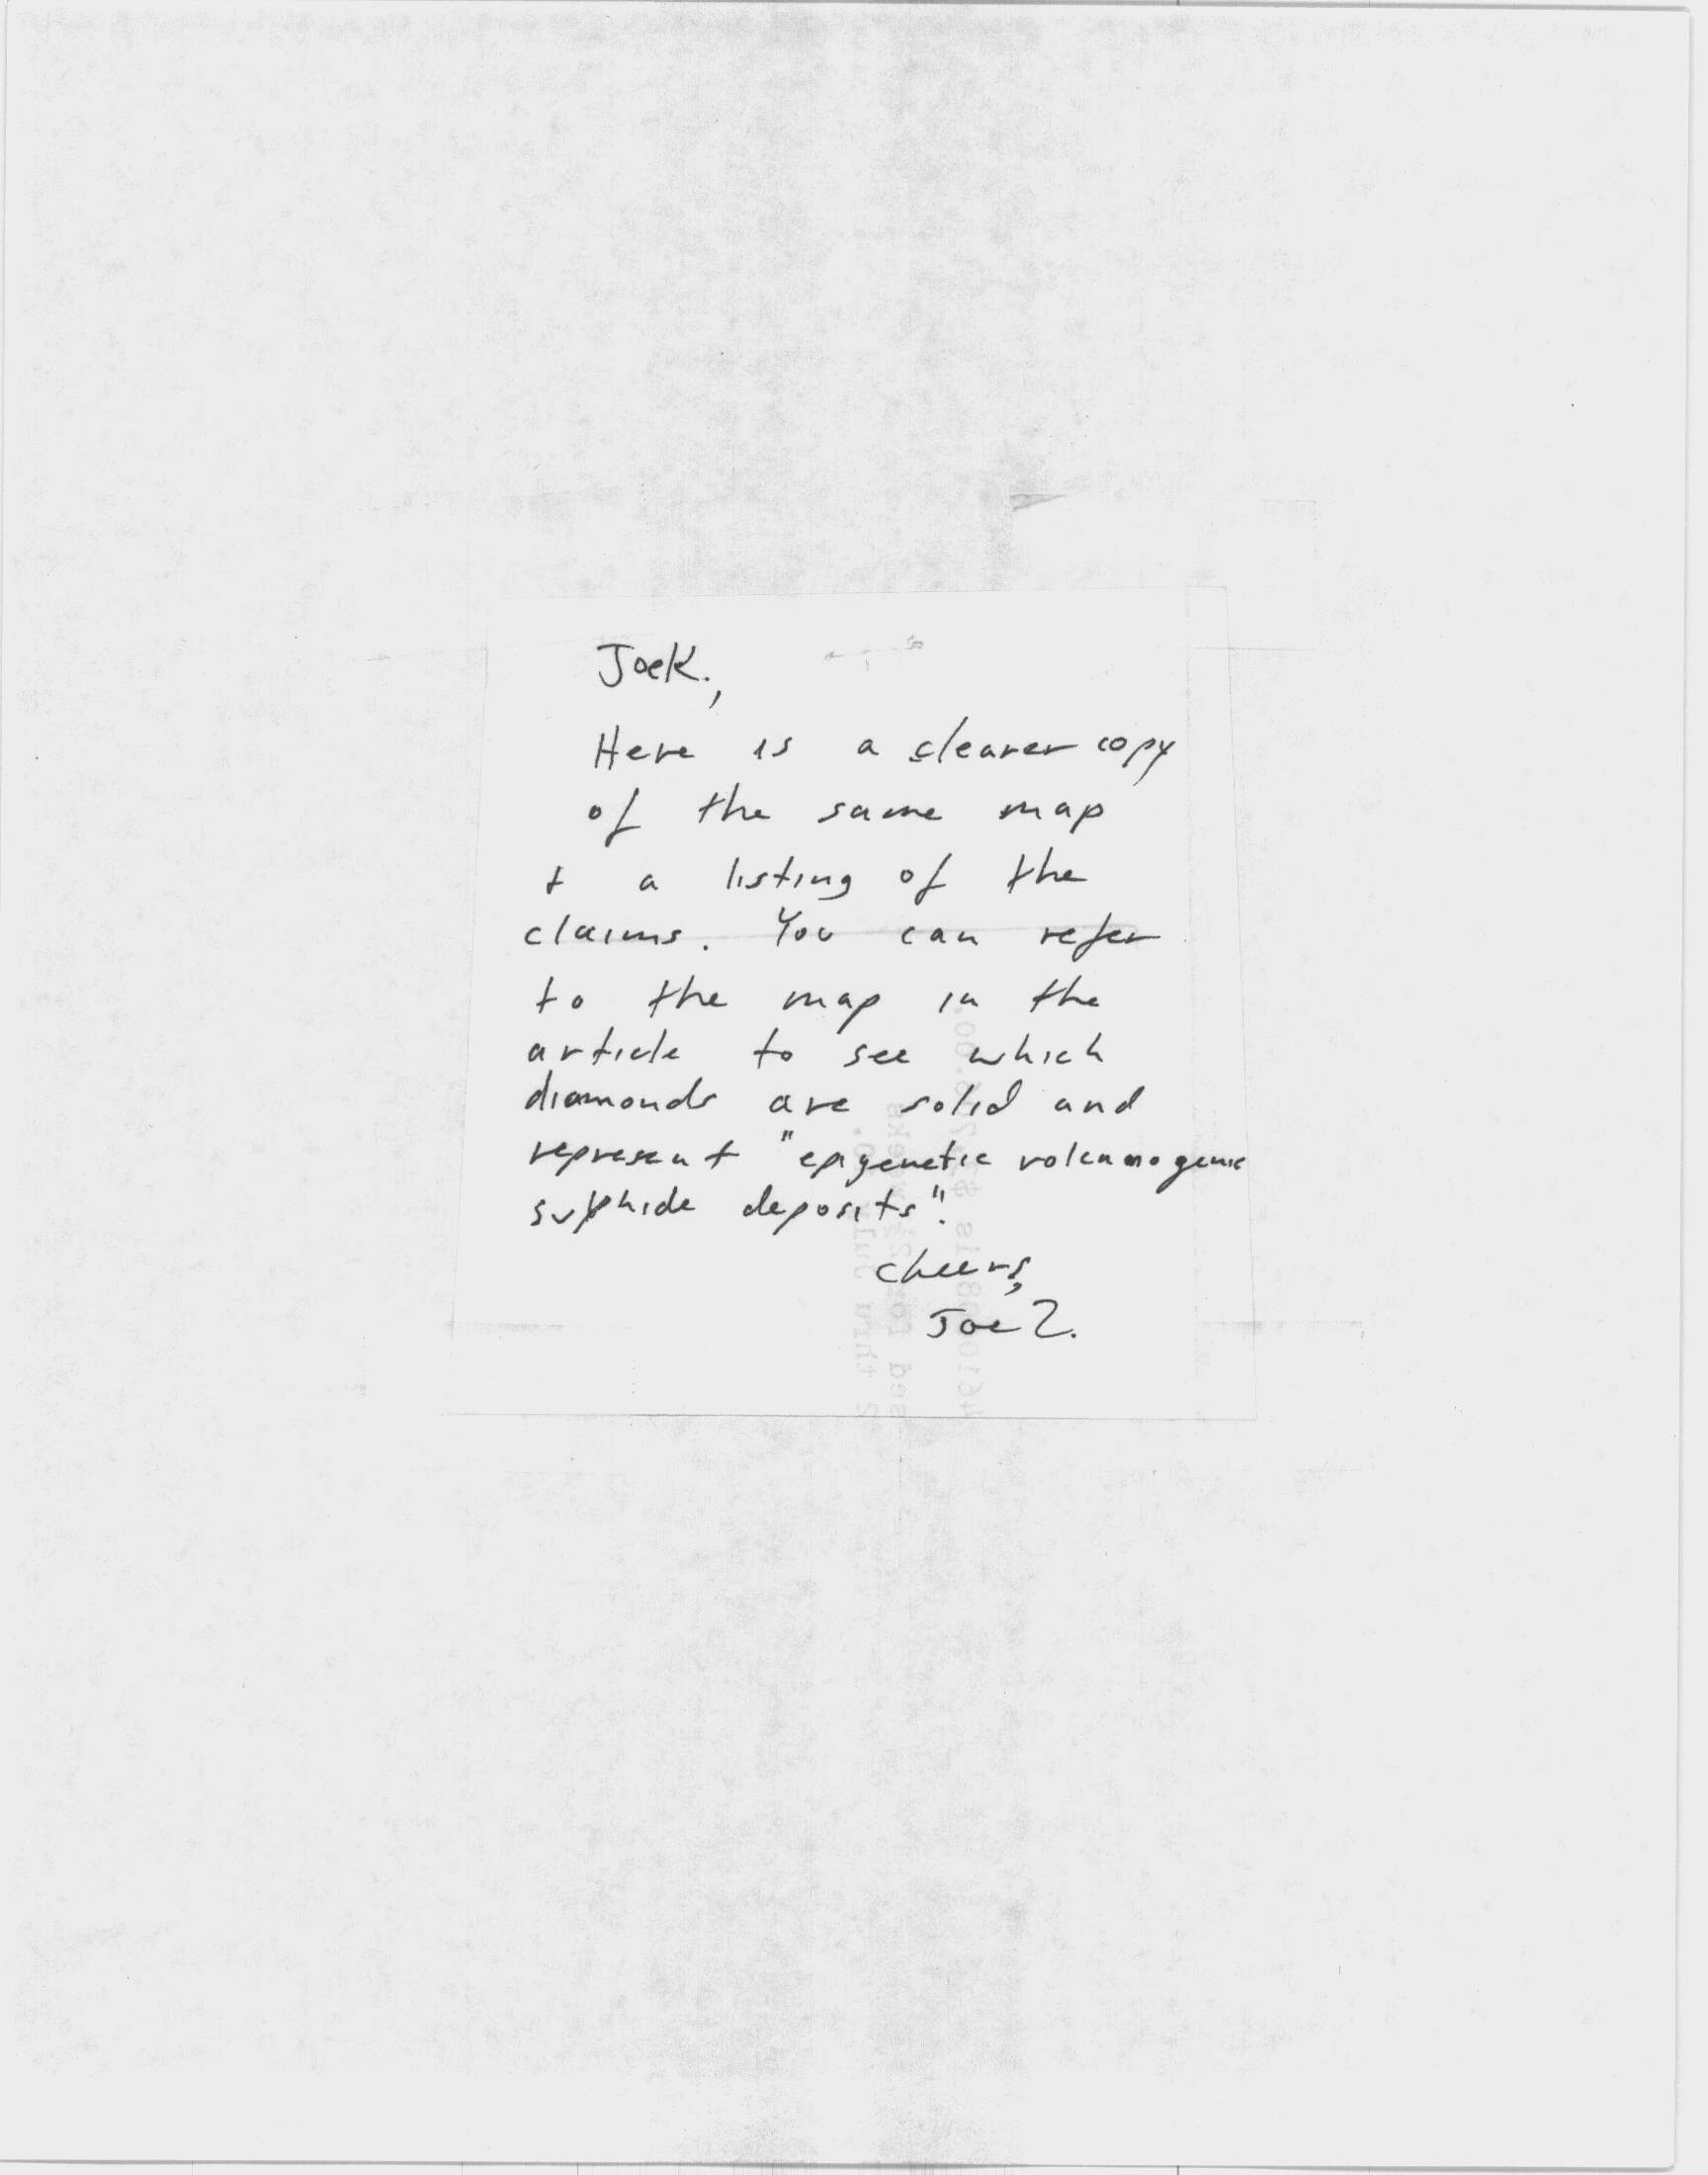 Joe K.,
Here is a clearer copy
of the same map
+ a listing of the
claims. You can refer
to the map in the
article to see which
diamonds are solid and
represent "epigenetic volcanogenic
sulphide deposits".
Cheers,
Joe Z.